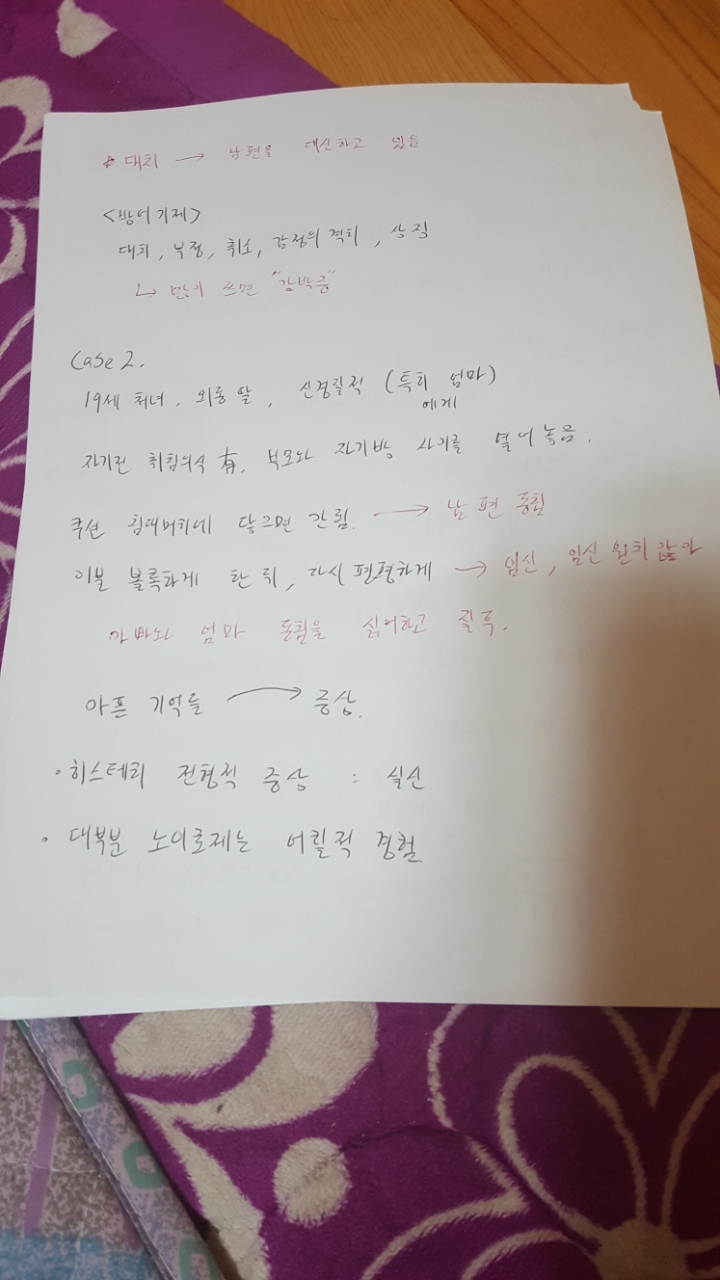 * 대치 → 남편을 대신하고 있음
<방어기제>
대치, 부정, 취소, 감정의 격리, 상징
↳ 많이 쓰면 "강박증"
Case 2.
19세 처녀. 외동딸, 신경질적 (특히 엄마)
에게
자기전 취침의식 有. 부모와 자기방 사이를 열어놓음.
쿠션 침대머리에 닿으면 안됨. →
이불 볼록하게 한 뒤, 다시 평평하게 → 임신, 임신 원치 않아
아빠와 엄마 동침을 싫어하고 질투.
아픈 기억들 → 증상.
· 히스테리 전형적 증상 : 실신
· 대부분 노이로제는 어릴적 경험